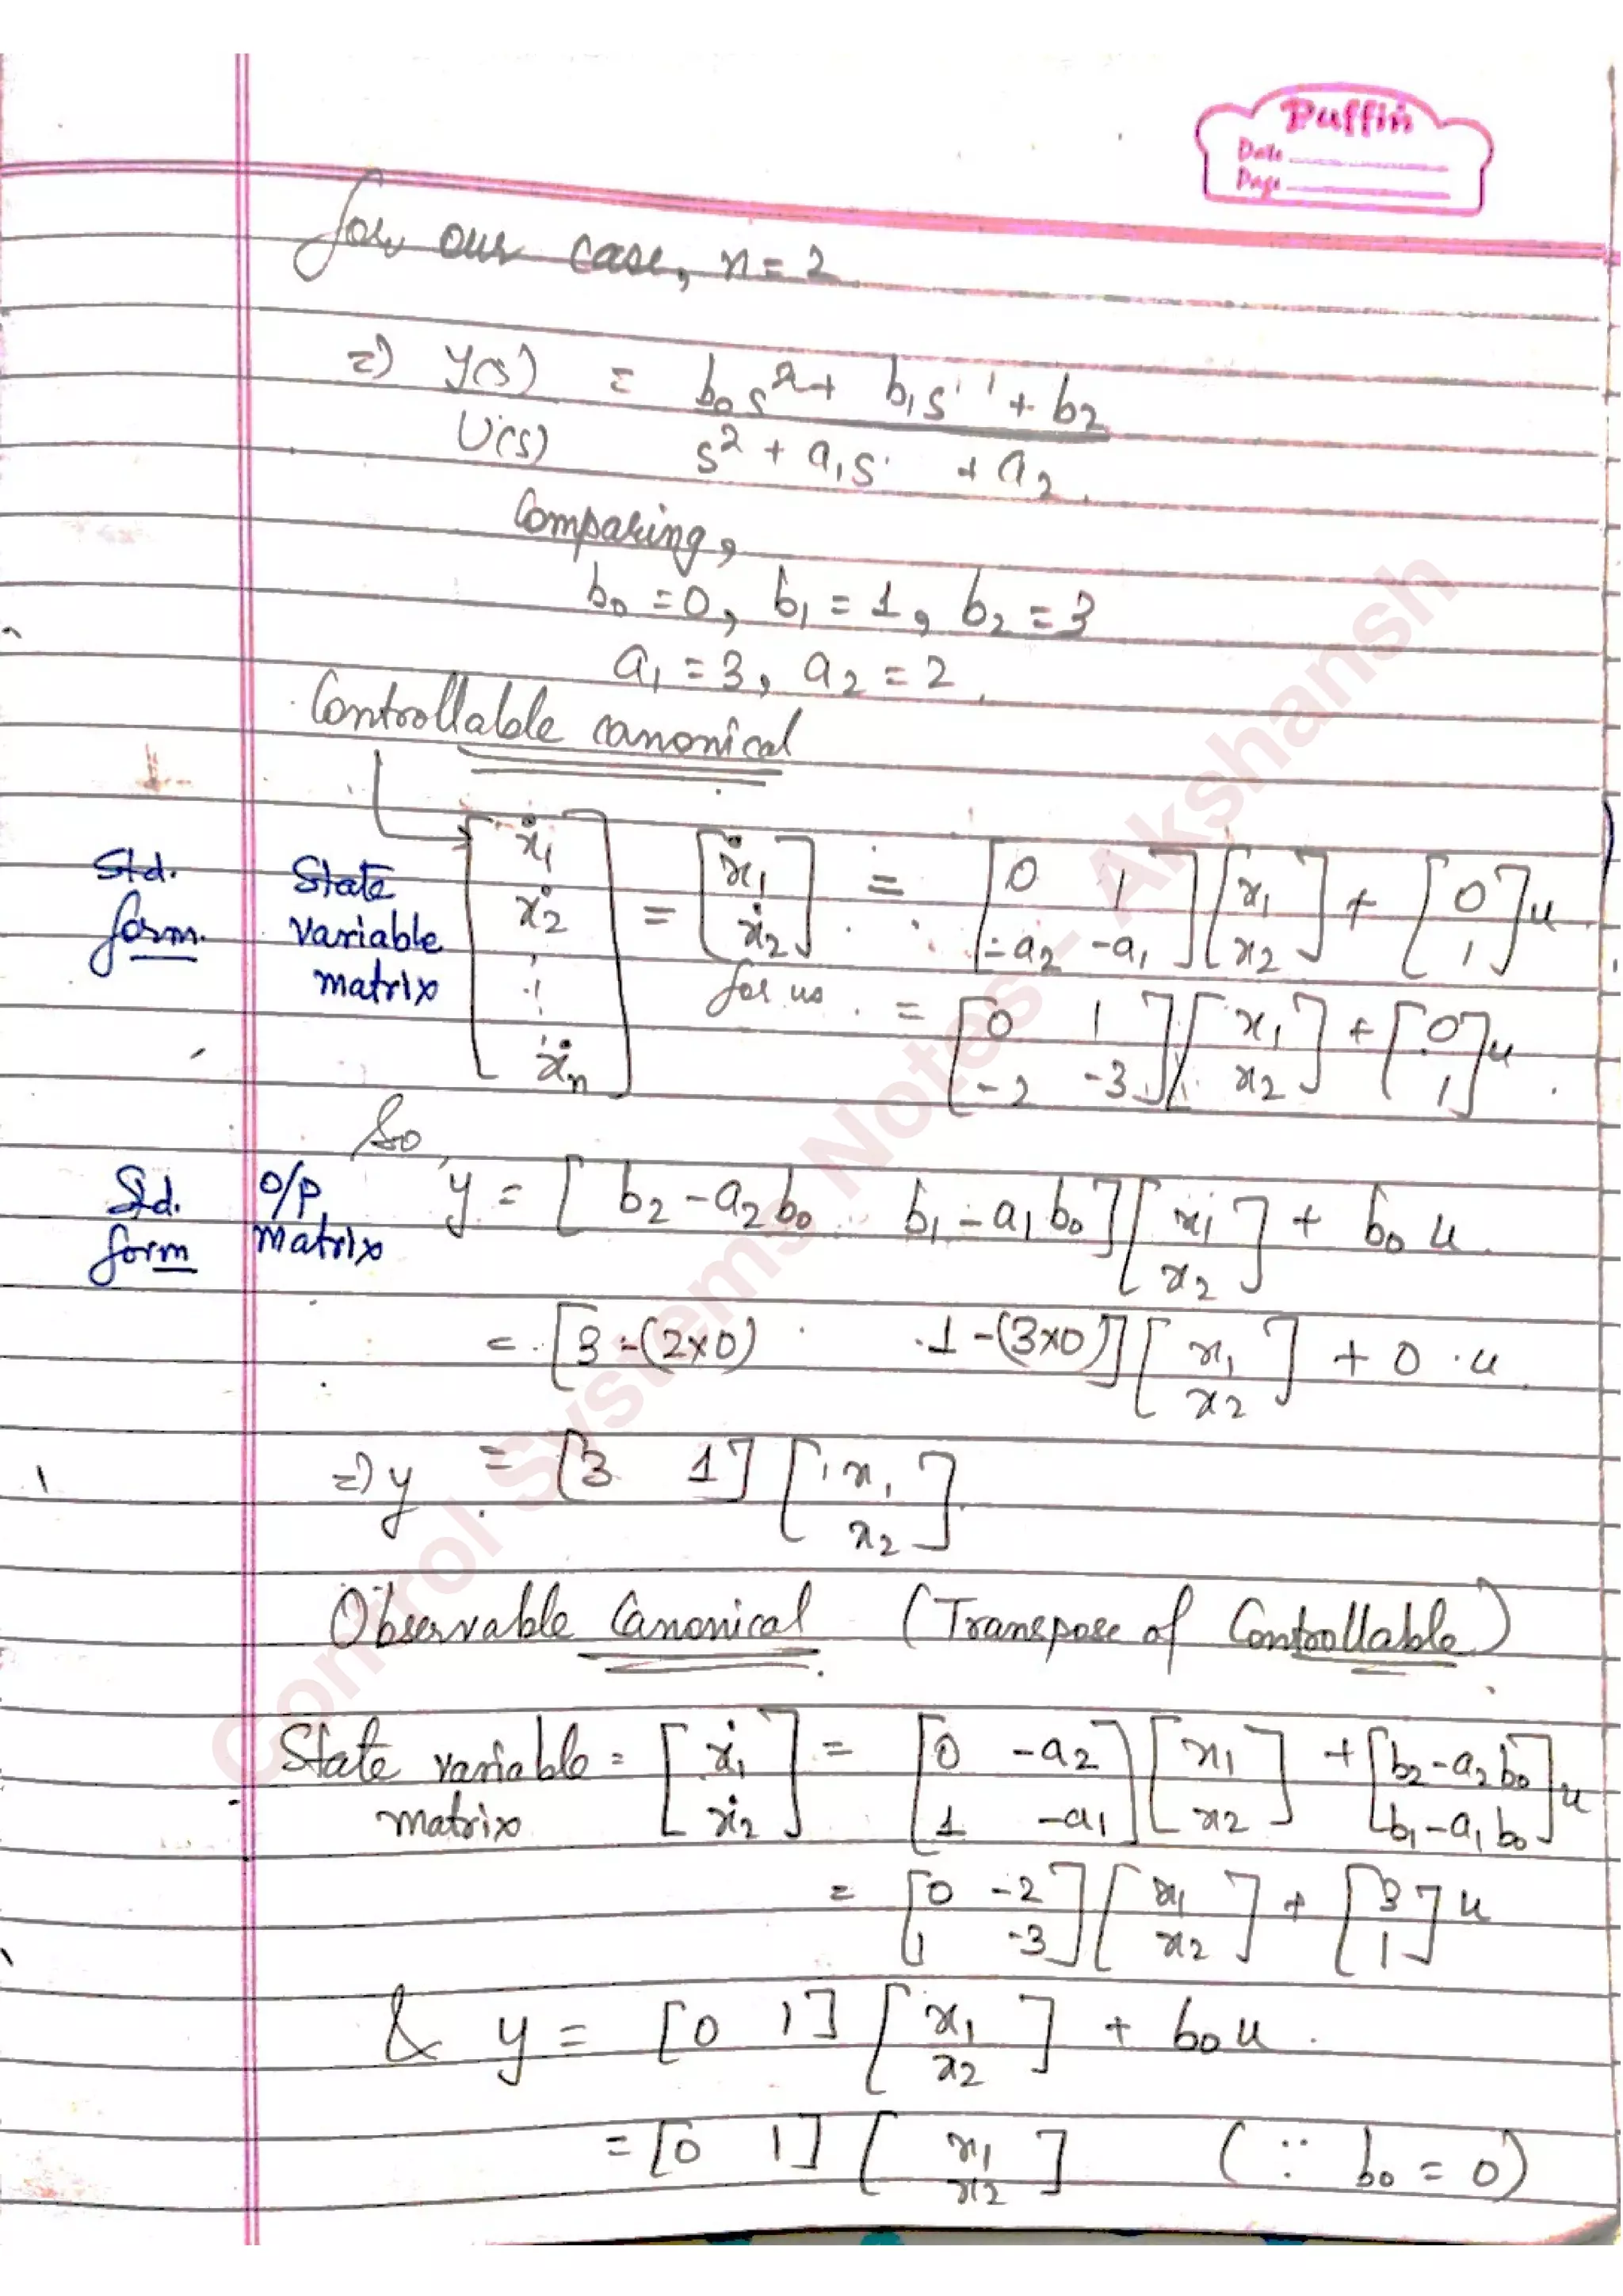 Puffin
Date
Page
for our case, n = 2
=> Y(s)/U(s) = (b₀s² + b₁s¹ + b₂)/(s² + a₁s + a₂)
Comparing,
b₀ = 0, b₁ = 1, b₂ = 3
a₁ = 3, a₂ = 2
Controllable canonical
Std. form State variable matrix [ẋ₁ ẋ₂ ⋮ ẋₙ] = [ẋ₁ ẋ₂] = [0 1; -a₂ -a₁] [x₁ x₂] + [0 1] u
for us = [0 1; -2 -3] [x₁ x₂] + [0 1] u
So,
Std. form O/P matrix y = [b₂ - a₂b₀ b₁ - a₁b₀] [x₁ x₂] + b₀ u
= [3 - (2×0) 1 - (3×0)] [x₁ x₂] + 0 · u
=> y = [3 1] [x₁ x₂]
Observable Canonical (Transpose of Controllable)
State variable matrix = [ẋ₁ ẋ₂] = [0 -a₂; 1 -a₁] [x₁ x₂] + [b₂ - a₂b₀ b₁ - a₁b₀] u
= [0 -2; 1 -3] [x₁ x₂] + [3 1] u
& y = [0 1] [x₁ x₂] + b₀ u
= [0 1] [x₁ x₂] (∵ b₀ = 0)
Control Systems Notes - Akshansh